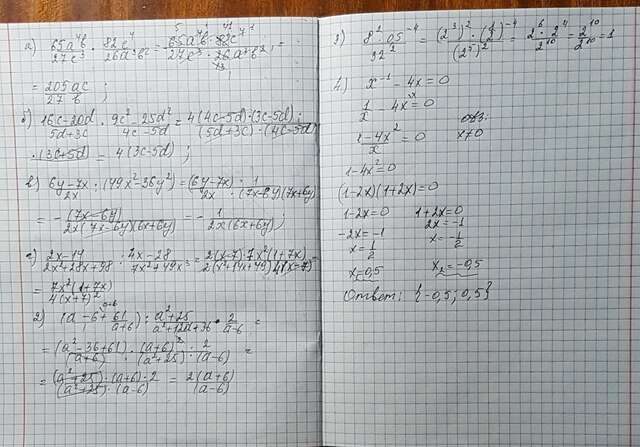 а) 65a⁴b/27c³ · 82c⁴/26a³b² = 65a⁴b · 82c⁴/27c³ · 26a³b² =
= 205ac/27b ;
б) 16c-20d/5d+3c · 9c²-25d²/4c-5d = 4(4c-5d)·(3c-5d)·/(5d+3c)·(4c-5d)
·(3c+5d) = 4(3c-5d) ;
в) 6y-7x/2x : (49x²-36y²) = (6y-7x)/2x · 1/(7x-6y)(7x+6y)
= - (7x-6y)/2x(7x-6y)(6x+6y) = - 1/2x(6x+6y) ;
г) 2x-14/2x²+28x+98 : 4x-28/7x²+49x³ = 2(x-7)·7x²(1+7x)/2(x²+14x+49)·4(x-7) =
= 7x²(1+7x)/4(x+7)²
д) (a-6+61/a+6) : a²+25/a²+12a+36 · 2/a-6 =
= (a²-36+61)/(a+6) · (a+6)²/(a²+25) · 2/(a-6) =
= (a²+25)·(a+6)·2/(a²+25)·(a-6) = 2(a+6)/(a-6)
3) 8²·0,5⁻⁴/32² = (2³)²·(1/2)⁻⁴/(2⁵)² = 2⁶·2⁴/2¹⁰ = 2¹⁰/2¹⁰ = 1
4) x⁻¹ - 4x = 0
1/x - 4x = 0
1-4x²/x = 0
одз:
x≠0
1-4x²=0
(1-2x)(1+2x)=0
1-2x=0 1+2x=0
-2x=-1 2x=-1
x=1/2 x=-1/2
x₁=0,5 x₂=-0,5
Ответ: {-0,5; 0,5}